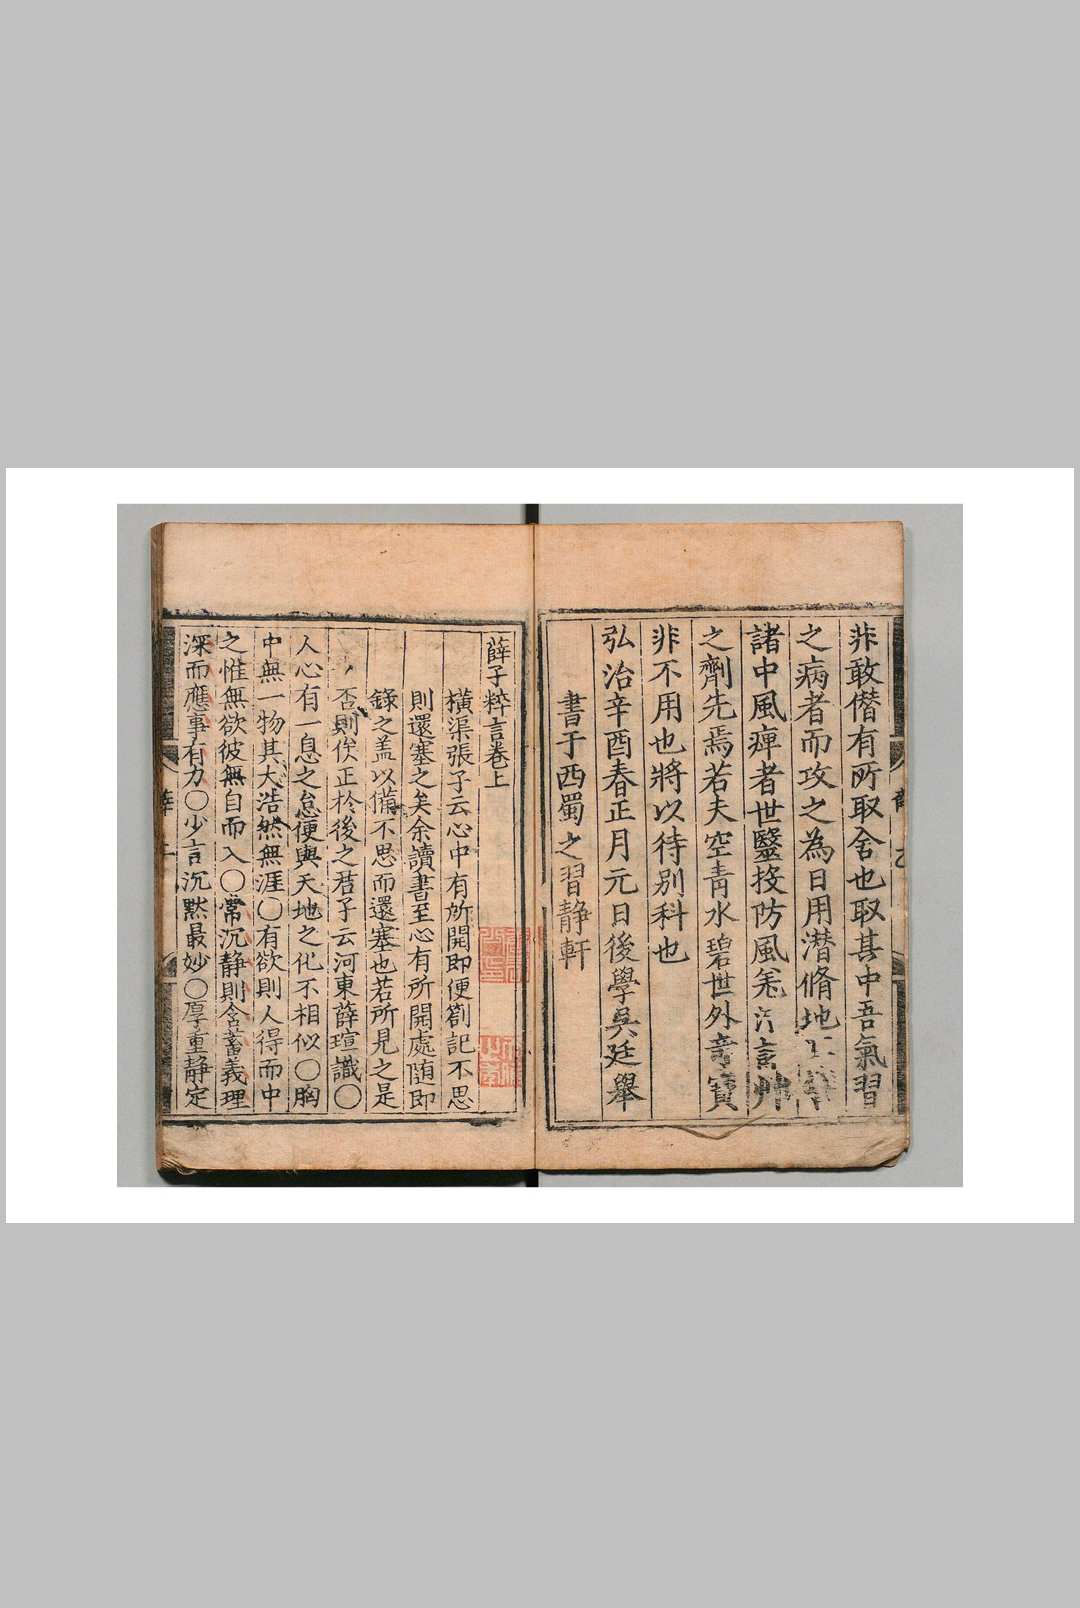 非敢僭有所取舍也取其中吾氣習
之病者而攻之為日用潜脩地
諸中風痺者世毉投防風羗
之劑先焉若夫空青水碧世外竒寶
非不用也將以待别科也
弘治辛酉春正月元日後學吳廷舉
書于西蜀之習静軒
薛子粹言卷上
橫渠張子云心中有所開即便劄記不思
則還塞之矣余讀書至心有所開處随即
錄之盖以備不思而還塞也若所見之是
否則俟正於後之君子云河東薛瑄識〇
人心有一息之怠便與天地之化不相似〇胸
中無一物其大浩然無涯〇有欲則人得而中
之惟無欲彼無自而入〇常沉静則含蓄義理
深而應事有力〇少言沉默最妙〇厚重静定